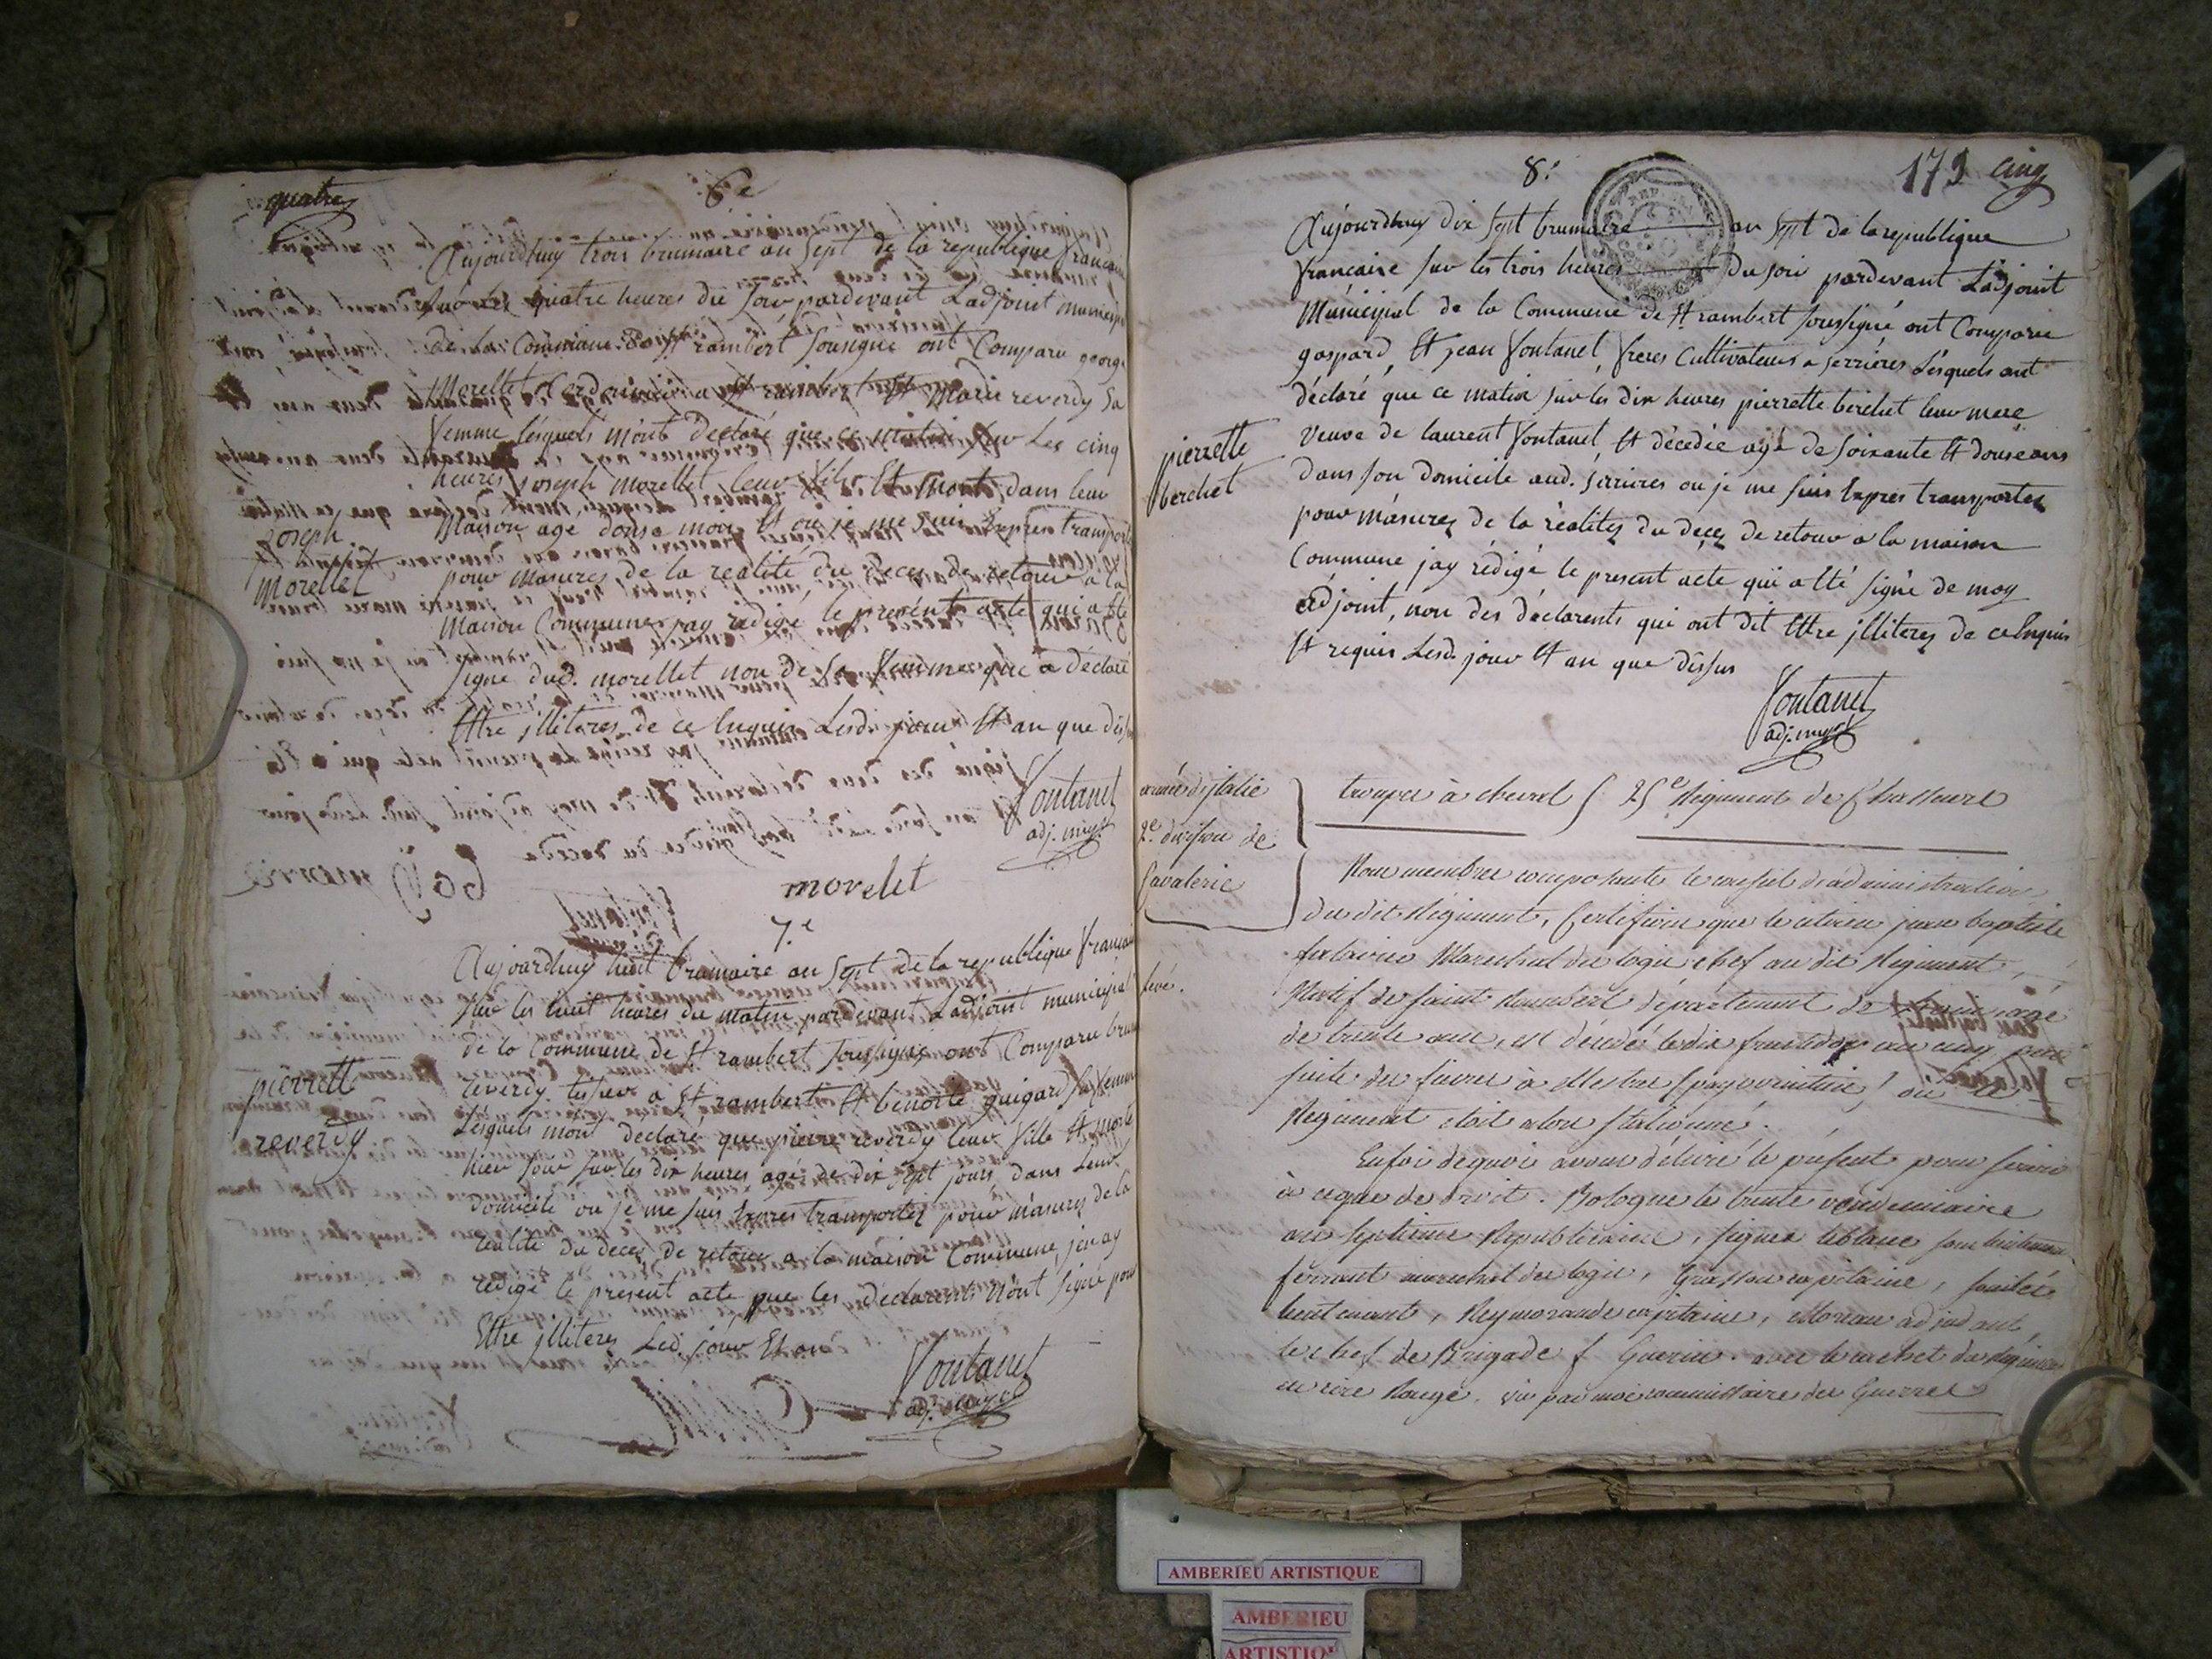 quatre
6e
Aujourdhuy trois brumaire an sept de la republique francaise
sur les quatre heures du soir pardevant Ladjoint municipal
de la Commune de St rambert sousigné ont Comparu george
Morellet Cordonnier a St rambert Et Marie reverdy sa
femme lesquels m'ont declaré que ce matin sur Les cinq
heures joseph morellet leur fils Et mort dans leur
Maison age douse mois Et ou je me suis Expres transporté
joseph
morellet
pour masurez de la realité du deces de retour a la
Maison Commune jay redigé le present acte qui a Eté
signé dud. morellet non de sa femme que a déclaré
Ettre illiterez de ce Enquis Lesd. jour Et an que dessus
Fontanel
adj. mupl
morelet
7.e
Aujourdhuy huit brumaire an sept de la republique francaise
sur les huit heures du matin pardevant Ladjoint municipal
de la Commune de St rambert soussigné ont Comparu
reverdy a St rambert Et benoite guigard sa femme
Lesquels mont declaré que pierre reverdy leur fille Et morte
pierrette
reverdy
hier soir sur les dix heures agé de dix sept jours dans leur
domicile ou je me suis Expres transportez pour m'asurez de la
realité du decez de retour a la maison Commune jen ay
redigé le present acte que les déclarents n'ont signé pour
Ettre illiterez Led. jour Et an
Fontanel
adj. mupl
8e
173 cinq
Aujourdhuy dix sept brumaire an sept de la republique
francaise sur les trois heures du soir pardevant L'adjoint
Municipal de la Commune de St rambert soussigné ont Comparu
gaspard Et jean fontanel freres Cultivateurs a serrieres Lesquels ont
déclaré que ce matin sur les dix heures pierrette berchet leur mere
Veuve de laurent fontanel Et décedée agé de soixante Et douse ans
pierrette
berchet
dans son domicile aud. serrieres ou je me suis Expres transportez
pour m'asurez de la réalitez du deçez de retour a la maison
Commune jay rédigé le present acte qui a Eté signé de moy
adjoint, non des déclarents qui ont dit Ettre illiterez de ce Enquis
Et requis Lesd. jour Et an que dessus
Fontanel
adj. mupl
armée d'italie
2e division de
Cavalerie
troupes à cheval 25e Régiment de Chasseurs
Nous membres composants le conseil d'administration
du dit Régiment, Certifions que le citoyen jean baptiste
Marechal des logis chef au dit Régiment,
Natif de saint Rambert département de agé
de trente ans, est décédé le dix fructidor an six, par
suite des fievres à Mestre ou le
Regiment etoit alors stationné.
En foi de quoi avons délivré le présent pour servir
à ce que de droit. Bologne le trente vendemiaire
an septieme Republicaine, signés leblanc sous lieutenant
ferrant marechal des logis, capitaine,
lieutenant, capitaine, Moreau adjudant,
le chef de Brigade f Guerin. avec le cachet du Régiment
en cire Rouge. vu par moi commissaire des Guerres
AMBERIEU ARTISTIQUE
AMBERIEU
ARTISTIQU